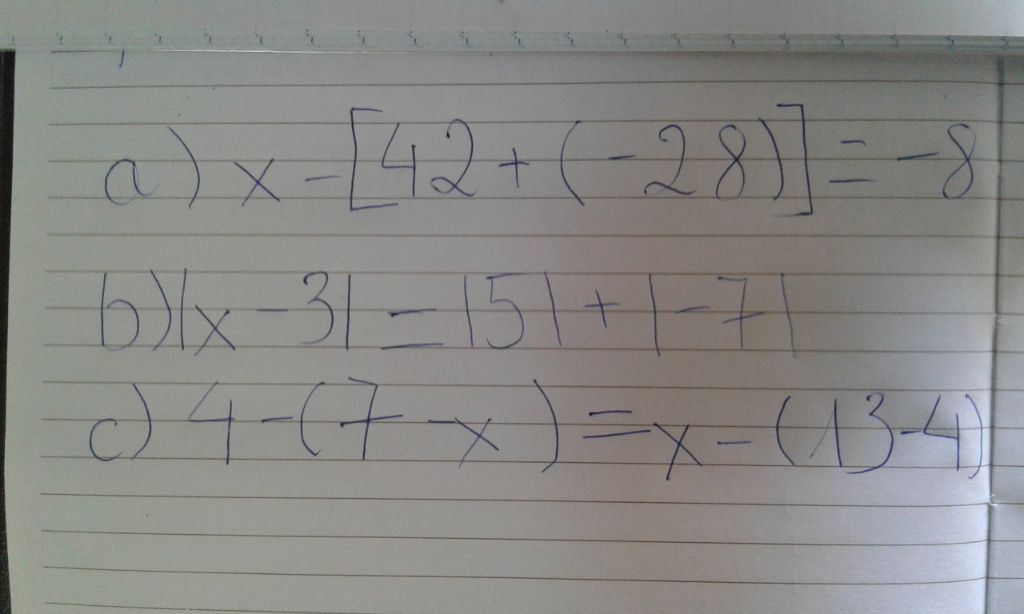 a) x - [42 + (-28)] = -8
b) |x - 3| = |5| + |-7|
c) 4 - (7 - x) = x - (13-4)